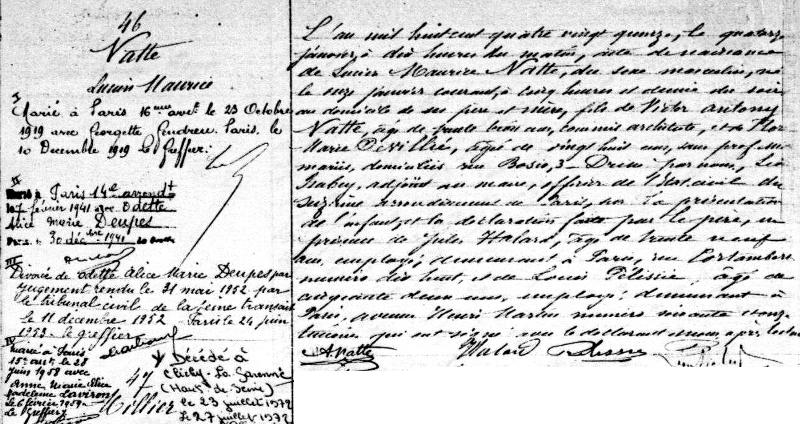 46
Natte
Lucien Maurice
I
Marié à Paris 16me arrt le 23 Octobre
1919 avec Georgette Gendreu Paris, le
10 Decembre 1919 Le Greffier.
II
Marié à Paris 14e arrondt
le 7 février 1941 avec Odette
Alice Marie Deupes
Paris le 30 déc 1941
III
Divorcé de Odette Alice Marie Deupes par
jugement rendu le 31 mai 1952 par
le tribunal civil de la Seine transcrit
le 11 decembre 1952 Paris le 24 juin
1953 le greffier
IV
Marié à Paris
15e arrt le 28
Anne Marie Alice
Madeleine Laviron
le 6 février 1959
Le Greffier
Décédé à
Clichy-La Garenne
(Hauts de Seine)
le 23 juillet 1972
le 27 juillet 1972
47
Millier
L'an mil huit cent quatre vingt quinze, le quatorze
janvier, à dix heures du matin, acte de naissance
de Lucien Maurice Natte, du sexe masculin, né
le onze janvier courant, à cinq heures et demie du soir
au domicile de ses père et mère, fils de Victor Antony
Natte, âgé de trente trois ans, commis architecte, et de
Marie Deville, âgée de vingt huit ans, sans profession
mariés, domiciliés rue Bosio, 3 - Dressé par nous, Léon
Isabey, adjoint au maire, officier de l'Etat civil du
seizième arrondissement de Paris, sur la présentation
de l'enfant et la déclaration faite par le père, en
présence de Jules Halard, âgé de trente neuf
ans, employé, demeurant à Paris, rue Cortambert
numéro dix huit, et de Louis Pélissié, âgé de
cinquante deux ans, employé, demeurant à
Paris, avenue Henri Martin numéro soixante et onze
témoins qui ont signé avec le déclarant et nous après lecture
A. Natte Halard